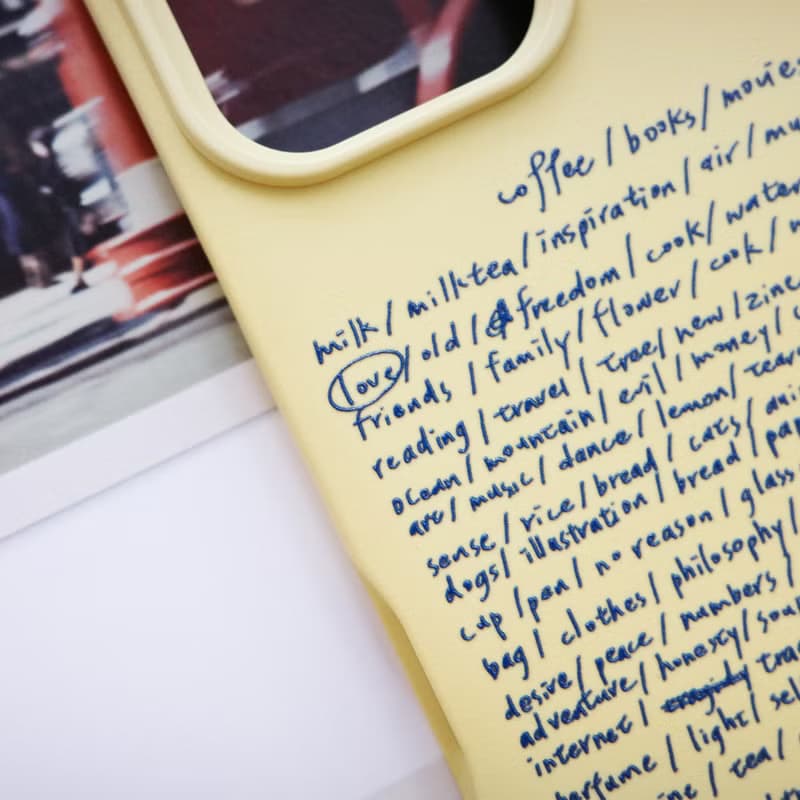 coffee / books / movies
milk / milktea / inspiration / air / mu
love / old / freedom / cook / water
friends / family / flower / cook /
reading / travel / tree / new / zine
ocean / mountain / evil / money /
art / music / dance / lemon / tear
sense / rice / bread / cats / ani
dogs / illustration / bread / pap
cup / pen / no reason / glass
bag / clothes / philosophy /
desire / peace / numbers /
adventure / honesty / soul
internet / tra
perfume / light / sel
ine / tea /